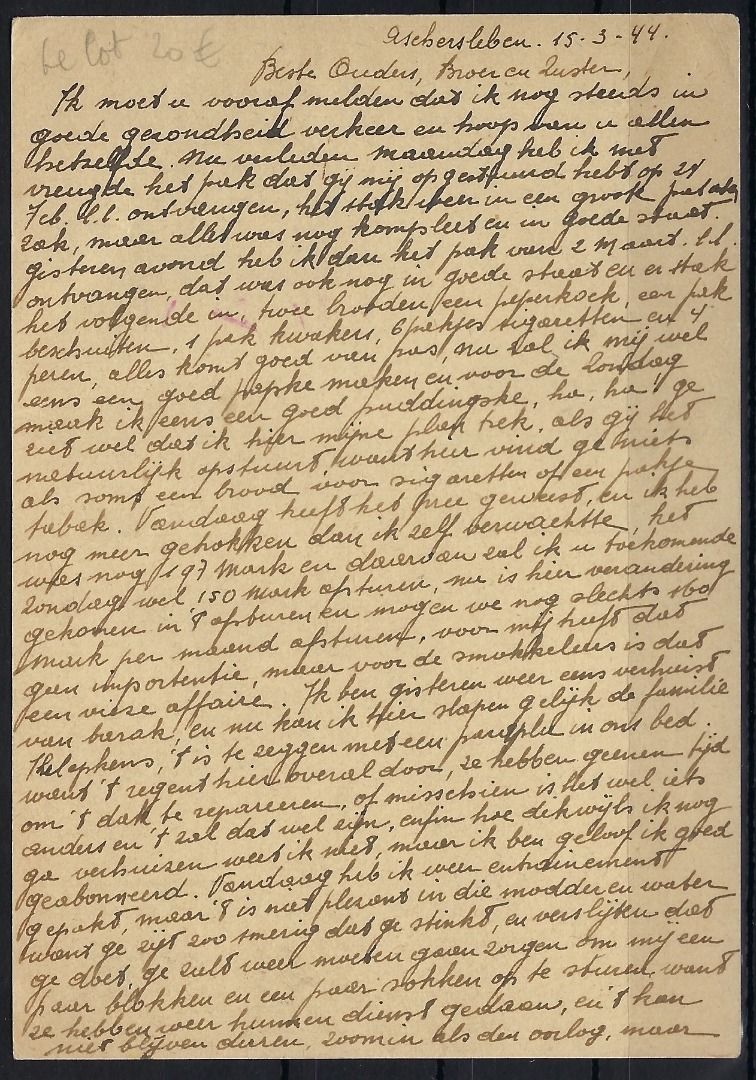 Le lot 20 €
Aschersleben. 15-3-44.
Beste Ouders, Broer en Zuster,
Ik moet u vooraf melden dat ik nog steeds in
goede gezondheid verkeer en hoop van u allen
hetzelfde. Nu verleden maandag heb ik met
vreugde het pak dat gij mij opgestuurd hebt op 24
Feb. l.l. ontvangen, het stak weer in een groote
zak, maar alles was nog kompleet en in goede staat.
gisteren avond heb ik dan het pak van 2 Maart. l.l.
ontvangen, dat was ook nog in goede staat en er stak
het volgende in, twee brooden, een peperkoek, een pak
beschuiten, 1 pak kwakers, 6 pakjes sigaretten en 4
peren, alles komt goed van pas, nu zal ik mij wel
eens een goed papske maken en voor de Zondag
maak ik eens een goed puddingske, ha, ha! ge
ziet wel dat ik hier mijne plan trek, als gij het
natuurlijk opstuurt want hier vind ge niets
als soms een brood voor sigaretten of een pakje
tabak. Vandaag heeft het pree geweest, en ik heb
nog meer getrokken dan ik zelf verwachtte, het
was nog 197 Mark en daarvan zal ik u toekomende
Zondag wel 150 Mark opsturen, nu is hier verandering
gekomen in 't afsturen en mogen we nog slechts 160
Mark per maand afsturen, voor mij heeft dat
geen importentie, maar voor de smokkeleurs is dat
een vieze affaire. Ik ben gisteren weer eens verhuist
van barak, en nu kan ik hier slapen gelijk de familie
't is te zeggen met een paraplu in ons bed.
want 't regent hier overal door, ze hebben geenen tijd
om 't dak te repareeren, of misschien is het wel iets
anders en 't zal dat wel zijn, enfin hoe dikwijls ik nog
ga verhuizen weet ik niet, maar ik ben geloof ik goed
geabonneerd. Vandaag heb ik weer entrainement
gepakt, maar 't is niet plezant in die modder en water
want ge zijt zoo smerig dat ge stinkt, en verslijten dat
ge doet, ge zult weer moeten gaan zorgen om mij een
paar blokken en een paar sokken op te sturen, want
ze hebben weer hunnen dienst gedaan, en 't kan
niet blijven duren, zoomin als den oorlog, maar